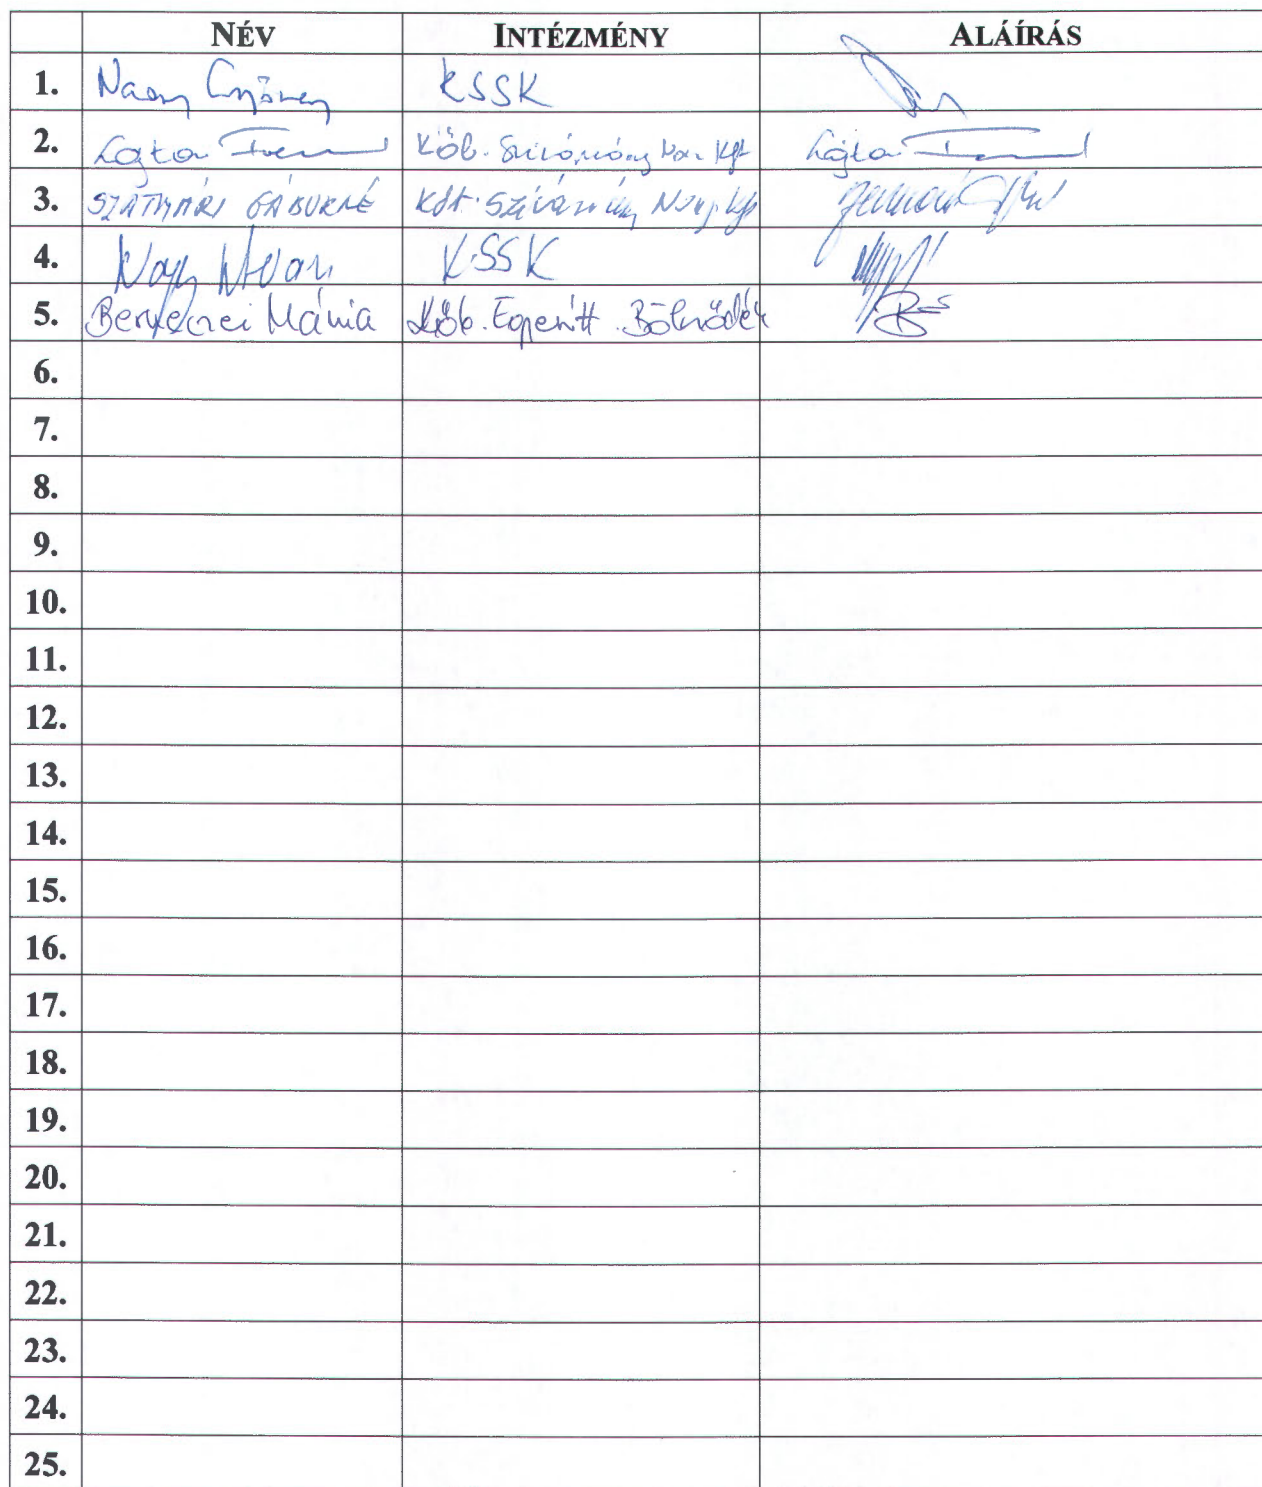 NÉV INTÉZMÉNY ALÁÍRÁS
1. Nagy KSSK
2. Lajtai Köb. Szivárvány Kft Lajtai
3. SZATMÁRI GÁBORNÉ Szivárvány
4. Nagy István KSSK
5. Berkeczei Mária Köb. Egyesített Bölcsődék
6.
7.
8.
9.
10.
11.
12.
13.
14.
15.
16.
17.
18.
19.
20.
21.
22.
23.
24.
25.